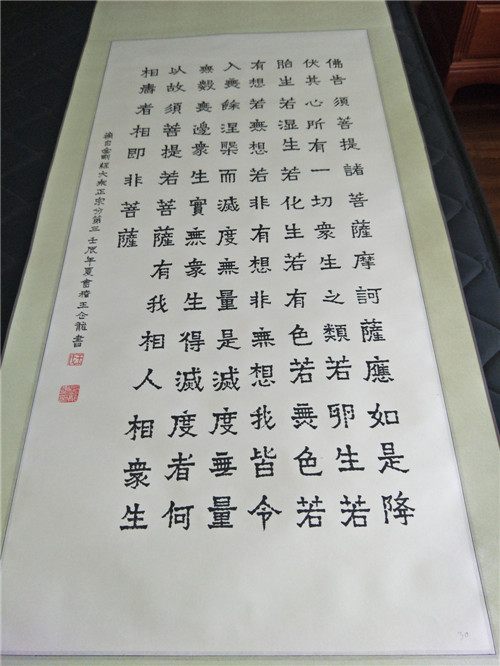 佛告須菩提諸菩薩摩訶薩應如是降
伏其心所有一切衆生之類若卵生若
胎生若湿生若化生若有色若無色若
有想若無想若非有想非無想我皆令
入無餘涅槃而滅度無量是滅度無量
無數無邊衆生實無衆生得滅度者何
以故須菩提若菩薩有我相人相衆生
相壽者相即非菩薩
錄自金剛經大乘正宗分第三 壬辰年夏會稽王龍書